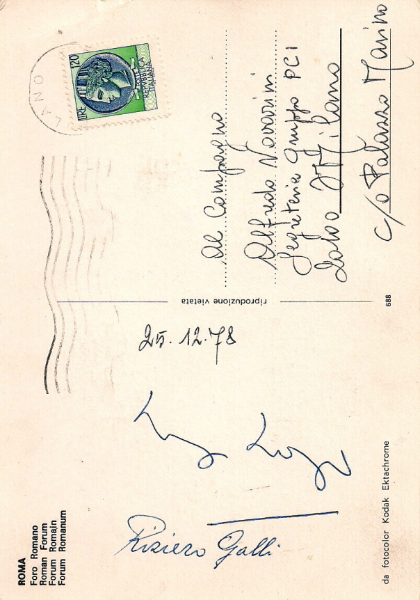 ROMA
Foro Romano
Roman Forum
Forum Romain
Forum Romanum
25.12.78
Riziero Galli
da fotocolor Kodak Ektachrome
riproduzione vietata
688
LIRE 120
Al Compagno
Alfredo Novarini
Segreteria Gruppo PCI
20100 Milano
c/o Palazzo Marino